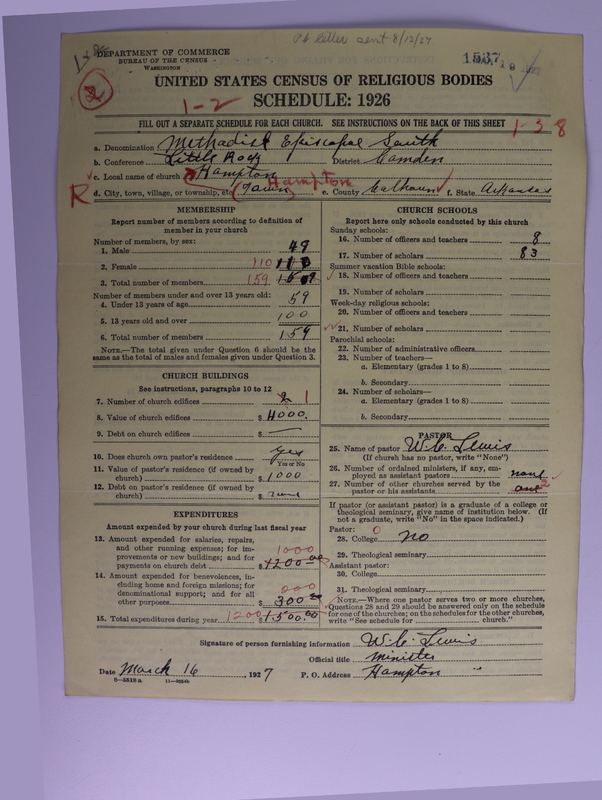 Ph letter sent 8/12/27
DEPARTMENT OF COMMERCE
BUREAU OF THE CENSUS
WASHINGTON
1537
2
UNITED STATES CENSUS OF RELIGIOUS BODIES
1-2
SCHEDULE: 1926
FILL OUT A SEPARATE SCHEDULE FOR EACH CHURCH. SEE INSTRUCTIONS ON THE BACK OF THIS SHEET
1-3 8
a. Denomination Methodist Episcopal South
b. Conference Little Rock District Camden
c. Local name of church Hampton
R d. City, town, village, or township, etc (Town) Hampton e. County Calhoun f. State Arkansas
MEMBERSHIP
Report number of members according to definition of
member in your church
Number of members, by sex:
1. Male 49
2. Female 110 110
3. Total number of members 159 159
Number of members under and over 13 years old:
4. Under 13 years of age 59
5. 13 years old and over 100
6. Total number of members 159
NOTE.—The total given under Question 6 should be
same as the total of males and females given under Question 3.
CHURCH BUILDINGS
See instructions, paragraphs 10 to 12
7. Number of church edifices 2 1
8. Value of church edifices $ 4000.
9. Debt on church edifices $ —
10. Does church own pastor's residence yes
Yes or No
11. Value of pastor's residence (if owned by
church) $ 1000
12. Debt on pastor's residence (if owned by
church) $ none
EXPENDITURES
Amount expended by your church during last fiscal year
13. Amount expended for salaries, repairs,
and other running expenses; for im-
provements or new buildings; and for
payments on church debt $ 1200.00
1000
14. Amount expended for benevolences, in-
cluding home and foreign missions; for
denominational support; and for all
other purposes $ 300.00
15. Total expenditures during year 1200 $ 1,500.00
CHURCH SCHOOLS
Report here only schools conducted by this church
Sunday schools:
16. Number of officers and teachers 8
17. Number of scholars 83
Summer vacation Bible schools:
18. Number of officers and teachers
19. Number of scholars
Week-day religious schools:
20. Number of officers and teachers
21. Number of scholars
Parochial schools:
22. Number of administrative officers
23. Number of teachers—
a. Elementary (grades 1 to 8)
b. Secondary
24. Number of scholars—
a. Elementary (grades 1 to 8)
b. Secondary
PASTOR
25. Name of pastor W. C. Lewis
(If church has no pastor, write "None")
26. Number of ordained ministers, if any, em-
ployed as assistant pastors none
27. Number of other churches served by the
pastor or his assistants one 2
If pastor (or assistant pastor) is a graduate of a college or
theological seminary, give name of institution below. (If
not a graduate, write "No" in the space indicated.)
Pastor: 0
28. College No
29. Theological seminary
Assistant pastor:
30. College
31. Theological seminary
NOTE.—Where one pastor serves two or more churches,
Questions 28 and 29 should be answered only on the schedule
for one of the churches; on the schedules for the other churches,
write "See schedule for church."
Signature of person furnishing information W. C. Lewis
Official title Minister
Date March 16 1927 P. O. Address Hampton "